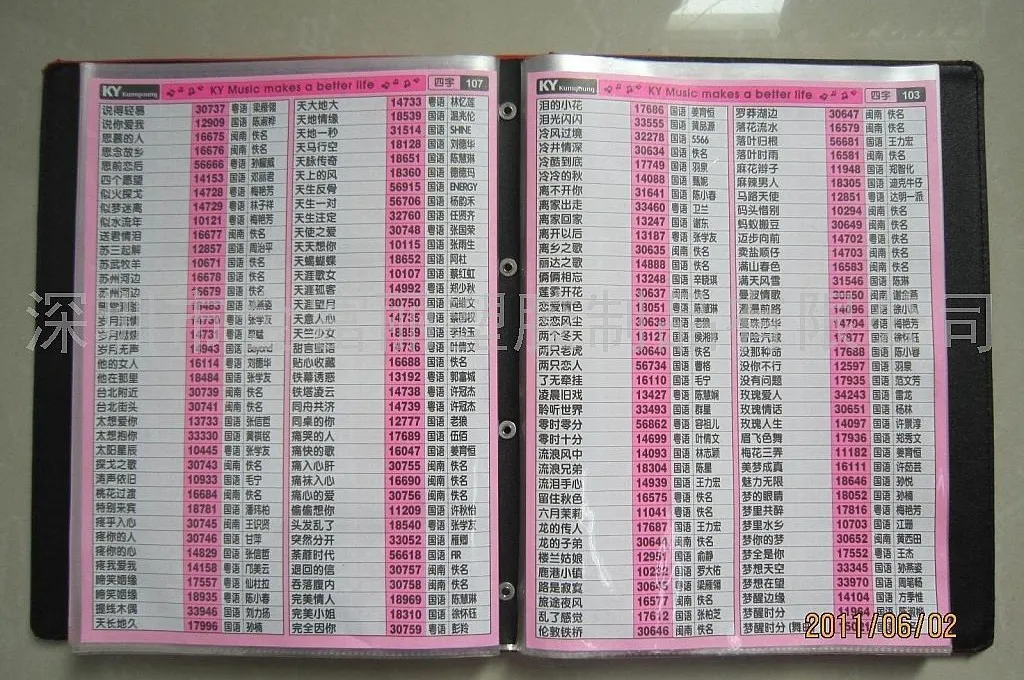 KY Music makes a better life 四字 107
说得轻易 30737 粤语 梁雁翎
说你爱我 12909 国语 陈淑桦
思慕的人 16675 闽南 佚名
思念故乡 16676 闽南 佚名
思前恋后 56666 粤语 孙耀威
四个愿望 14153 国语 邓丽君
似火探戈 14728 粤语 梅艳芳
似梦迷离 14729 粤语 林子祥
似水流年 10121 粤语 梅艳芳
送君情泪 16677 闽南 佚名
苏三起解 12857 国语 周治平
苏武牧羊 10671 国语 佚名
苏州河边 16678 国语 佚名
苏州河边
岁月无声 14943 国语 Beyond
他的女人 16114 粤语 刘德华
他在那里 18484 国语 张学友
台北附近 30739 闽南 佚名
台北街头 30741 闽南 佚名
太想爱你 13733 国语 张信哲
太想抱你 33330 国语 黄祺铭
太阳星辰 10445 粤语 张学友
探戈之歌 30743 闽南 佚名
涛声依旧 10933 国语 毛宁
桃花过渡 16684 闽南 佚名
特别来宾 18781 国语 潘玮柏
疼乎入心 30745 闽南 王识贤
疼你的人 30746 闽南 甘萍
疼你的心 14829 国语 张信哲
疼我爱我 14158 国语 邝美云
啼笑姻缘 17557 粤语 仙杜拉
啼笑姻缘 18935 粤语 陈小春
提线木偶 33946 国语 刘力扬
天长地久 17996 国语 孙楠
天大地大 14733 粤语 林忆莲
天地情缘 18539 国语 温兆伦
天地一秒 31514 国语 SHINE
天马行空 18128 国语 刘德华
天脉传奇 18651 国语 陈慧琳
天上的风 18360 国语 德德玛
天生反骨 56915 国语 ENERGY
天生一对 56706 国语 杨韵禾
天生注定 32760 国语 任贤齐
天使之爱 30748 粤语 张国荣
天天想你 10115 国语 张雨生
天蝎蝴蝶 18652 国语 阿杜
天涯歌女 10107 国语 蔡红虹
天涯孤客 14992 粤语 郑少秋
天涯望月 30750 闽南
天意人心 14735 粤语
天竺少女 18859 国语 李玲玉
甜言蜜语 14736 粤语 叶倩文
贴心收藏 16688 闽南 佚名
铁幕诱惑 13192 粤语 郭富城
铁塔凌云 14738 粤语 许冠杰
同舟共济 14739 粤语 许冠杰
同桌的你 12777 国语 老狼
痛哭的人 17689 国语 伍佰
痛快的歌 16047 国语 姜育恒
痛入心肝 30755 闽南 佚名
痛袜入心 16690 闽南 佚名
痛心的爱 30756 闽南 佚名
偷偷想你 11209 国语 许秋怡
头发乱了 18540 粤语 张学友
突然分开 33052 国语 雁卿
荼蘼时代 56618 国语 AIR
退回的信 30757 闽南 佚名
吞落腹内 30758 闽南 佚名
完美情人 18969 国语 陈慧琳
完美小姐 18310 国语 徐怀钰
完全因你 30759 粤语 彭羚
KY Music makes a better life 四字 103
泪的小花 17686 国语 姜育恒
泪光闪闪 33555 国语 黄品源
冷风过境 32278 国语 5566
冷井情深 30634 闽南 佚名
冷酷到底 17749 国语 羽泉
冷冷的秋 14088 国语 甄妮
离不开你 31641 国语 陈小春
离家出走 33460 粤语 卫兰
离家回家 13247 国语 谢东
离开以后 13187 粤语 张学友
离乡之歌 30635 闽南 佚名
丽达之歌 14888 国语 佚名
俩俩相忘 13248 国语 辛晓琪
莲雾开花 30637 闽南 佚名
恋爱情色 18051 粤语 陈慧琳
恋恋风尘 30638 国语 老狼
两个冬天 18127 国语 侯湘婷
两只老虎 30640 国语 佚名
两只恋人 56734 国语 曹格
了无牵挂 16110 国语 毛宁
凌晨旧戏 13427 粤语 陈慧娴
聆听世界 33493 国语 群星
零时零分 56862 粤语 容祖儿
零时十分 14699 粤语 叶倩文
流浪风中 14093 国语 林志颖
流浪兄弟 18304 国语 陈星
流泪手心 14939 国语 王力宏
留住秋色 16575 粤语 佚名
六月茉莉 11041 粤语 佚名
龙的传人 17687 国语 王力宏
龙的子弟 闽南 佚名
楼兰姑娘 国语 俞静
鹿港小镇 国语 罗大佑
路是寂寞 粤语 梁雁翎
旅途夜风 16577 闽南 佚名
乱了感觉 17612 国语 张柏芝
伦敦铁桥 30646 闽南 佚名
罗莽湖边 30647 闽南 佚名
落花流水 16579 闽南 佚名
落叶归根 56681 国语 王力宏
落叶时雨 16581 闽南 佚名
麻花辫子 11948 国语 郑智化
麻辣男人 18305 国语 迪克牛仔
马路天使 12851 粤语 达明一派
码头惜别 10294 闽南 佚名
蚂蚁搬豆 30649 闽南 佚名
迈步向前 14702 粤语 佚名
卖盐顺仔 14703 闽南 佚名
满山春色 16583 闽南 佚名
满天风雪 31546 国语 陈琳
曼波情歌 30650 闽南 谢金燕
漫漫前路 14096 国语 徐小凤
14794 粤语 梅艳芳
冒险气球 17877 国语 徐怀钰
没那种命 17688 国语 陈小春
没你不行 12597 国语 羽泉
没有问题 17935 国语 范文芳
玫瑰爱人 34243 国语 雷龙
玫瑰情话 30651 国语 杨林
玫瑰人生 14097 国语 许景淳
眉飞色舞 17936 国语 郑秀文
梅花三弄 11182 国语 姜育恒
美梦成真 16111 国语 许茹芸
魅力无限 18646 国语 孙悦
梦的眼睛 18052 国语 孙楠
梦里共醉 17816 粤语 梅艳芳
梦里水乡 10703 国语 江珊
梦你的梦 30652 闽南 黄西田
梦全是你 17552 粤语 王杰
梦想天空 33345 国语 孙燕姿
梦想在望 33970 国语 周笔畅
梦醒边缘 14104 国语 方季惟
梦醒时分 11964 国语 陈淑桦
梦醒时分
2011/06/02